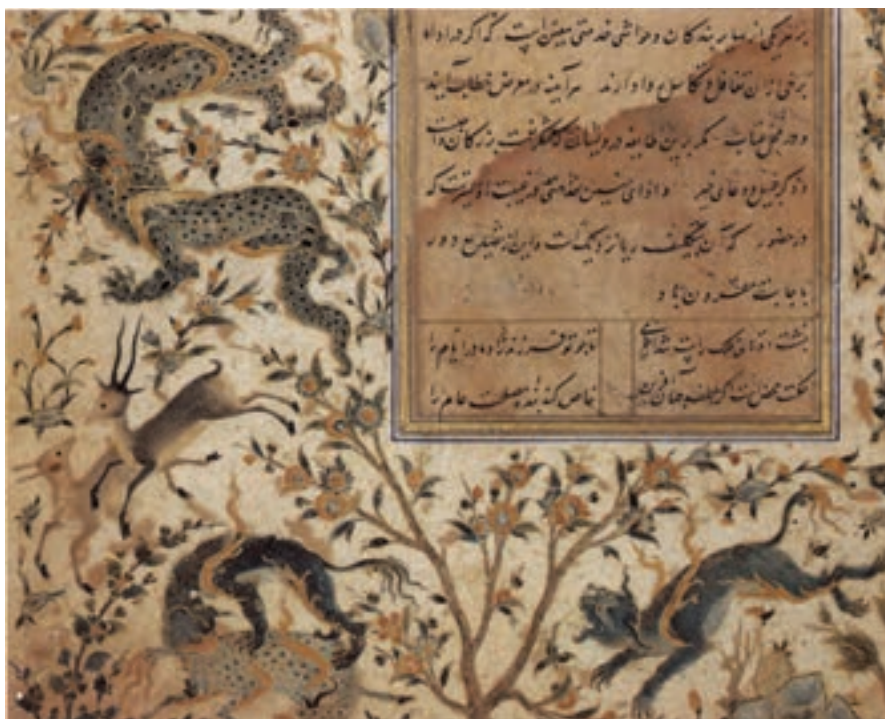 بر هر یکی از سایر بندگان و حواشی خدمتی معین است که اگر در ادای
برخی از آن تغافل و تکاسل روا دارند هر آینه در معرض خطاب آیند
و در محل عتاب مگر برین طایفه درویشان که شکر نعمت بزرگان واجبست
و ذکر جمیل و دعای خیر و ادای چنین خدمتی در غیبت اولیترست که
در حضور که آن بتکلف و این از تصنع دور
باجابت مقرون باد
پشت دوتای فلک راست شد از خرمی تا چو تو فرزند زاد مادر ایام را
حکمت محض است اگر لطف جهان آفرین خاص کند بنده مصلحت عام را